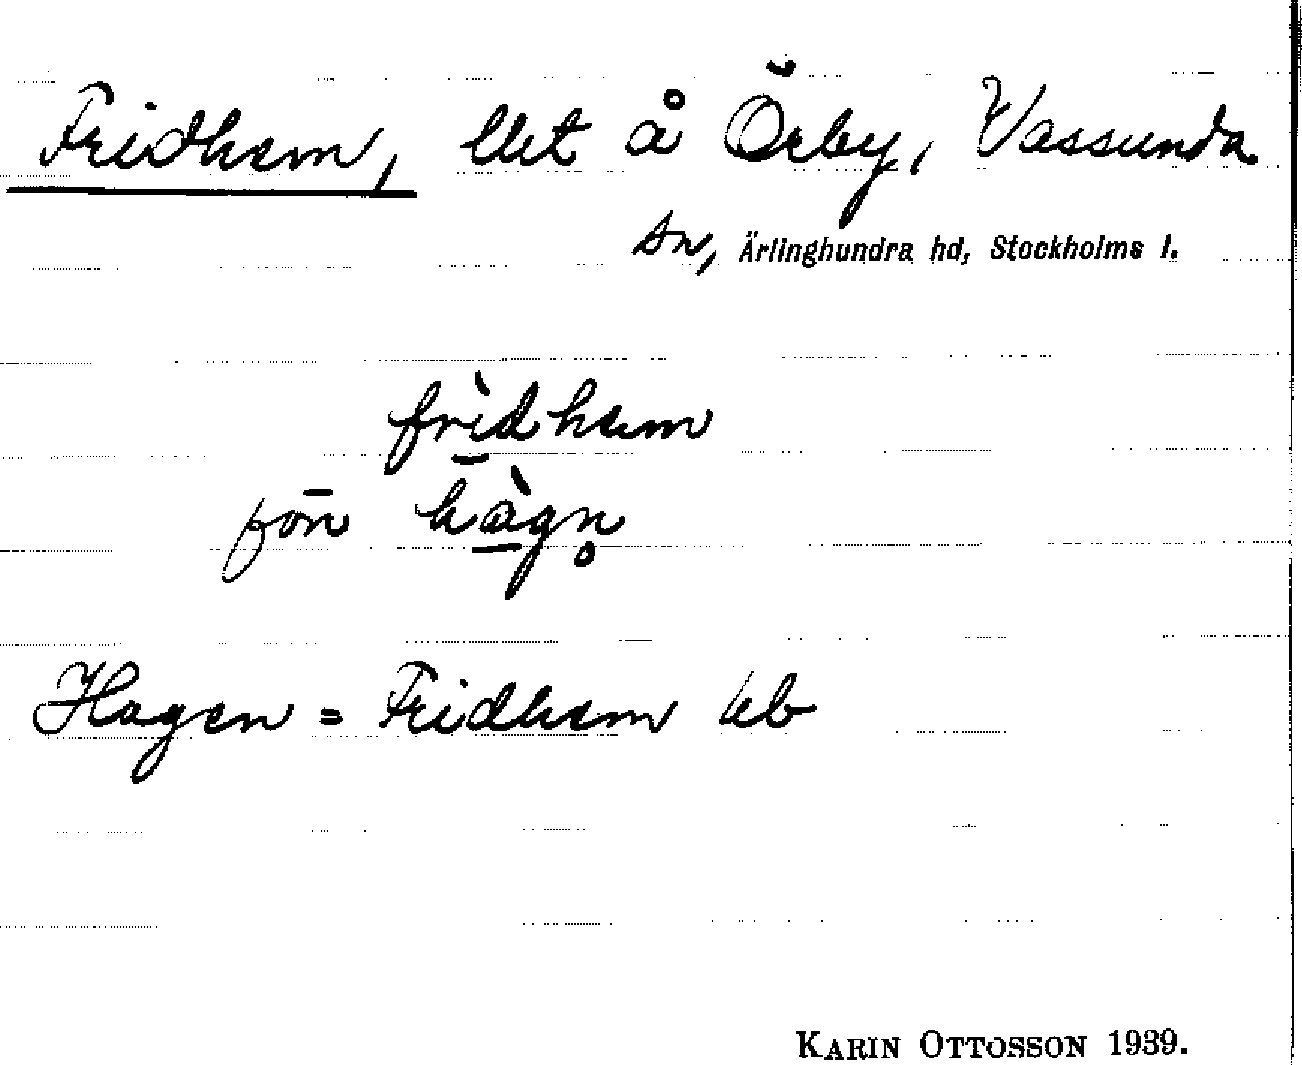 Fridhem, lht å Örby, Vassunda
sn, Ärlinghundra hd, Stockholms l.
frìdhem
fo̅n hàgn̥
Hagen = Fridhem kb
KARIN OTTOSSON 1939.